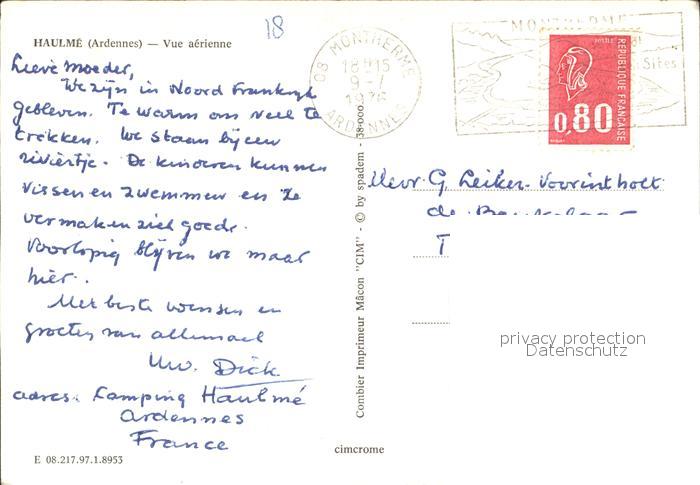 18
HAULMÉ (Ardennes) — Vue aérienne
Lieve Moeder,
We zijn in Noord Frankrijk
gebleven. Te warm om veel te
trekken. We staan bij een
riviertje. De kinderen kunnen
vissen en zwemmen en ze
vermaken zich goed.
Voorlopig blijven we maar
hier.
Met beste wensen en
groeten van allemaal
Uw. Dick
adres. Camping Haulmé
Ardennes
France
E 08.217.97.1.8953
Combier Imprimeur Mâcon "CIM" - © by spadem - 38-000
cimcrome
08 MONTHERME
18H15
9-7
1976
ARDENNES
MONTHERMÉ
Sites
POSTES
RÉPUBLIQUE FRANÇAISE
0,80
Mevr. G. Leiker-Voorintholt
de
T
privacy protection
Datenschutz